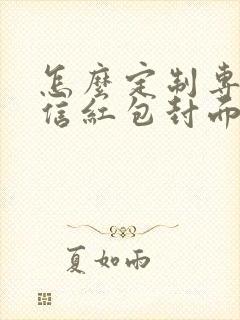 怎麼定制專
信紅包封而
夏如雨